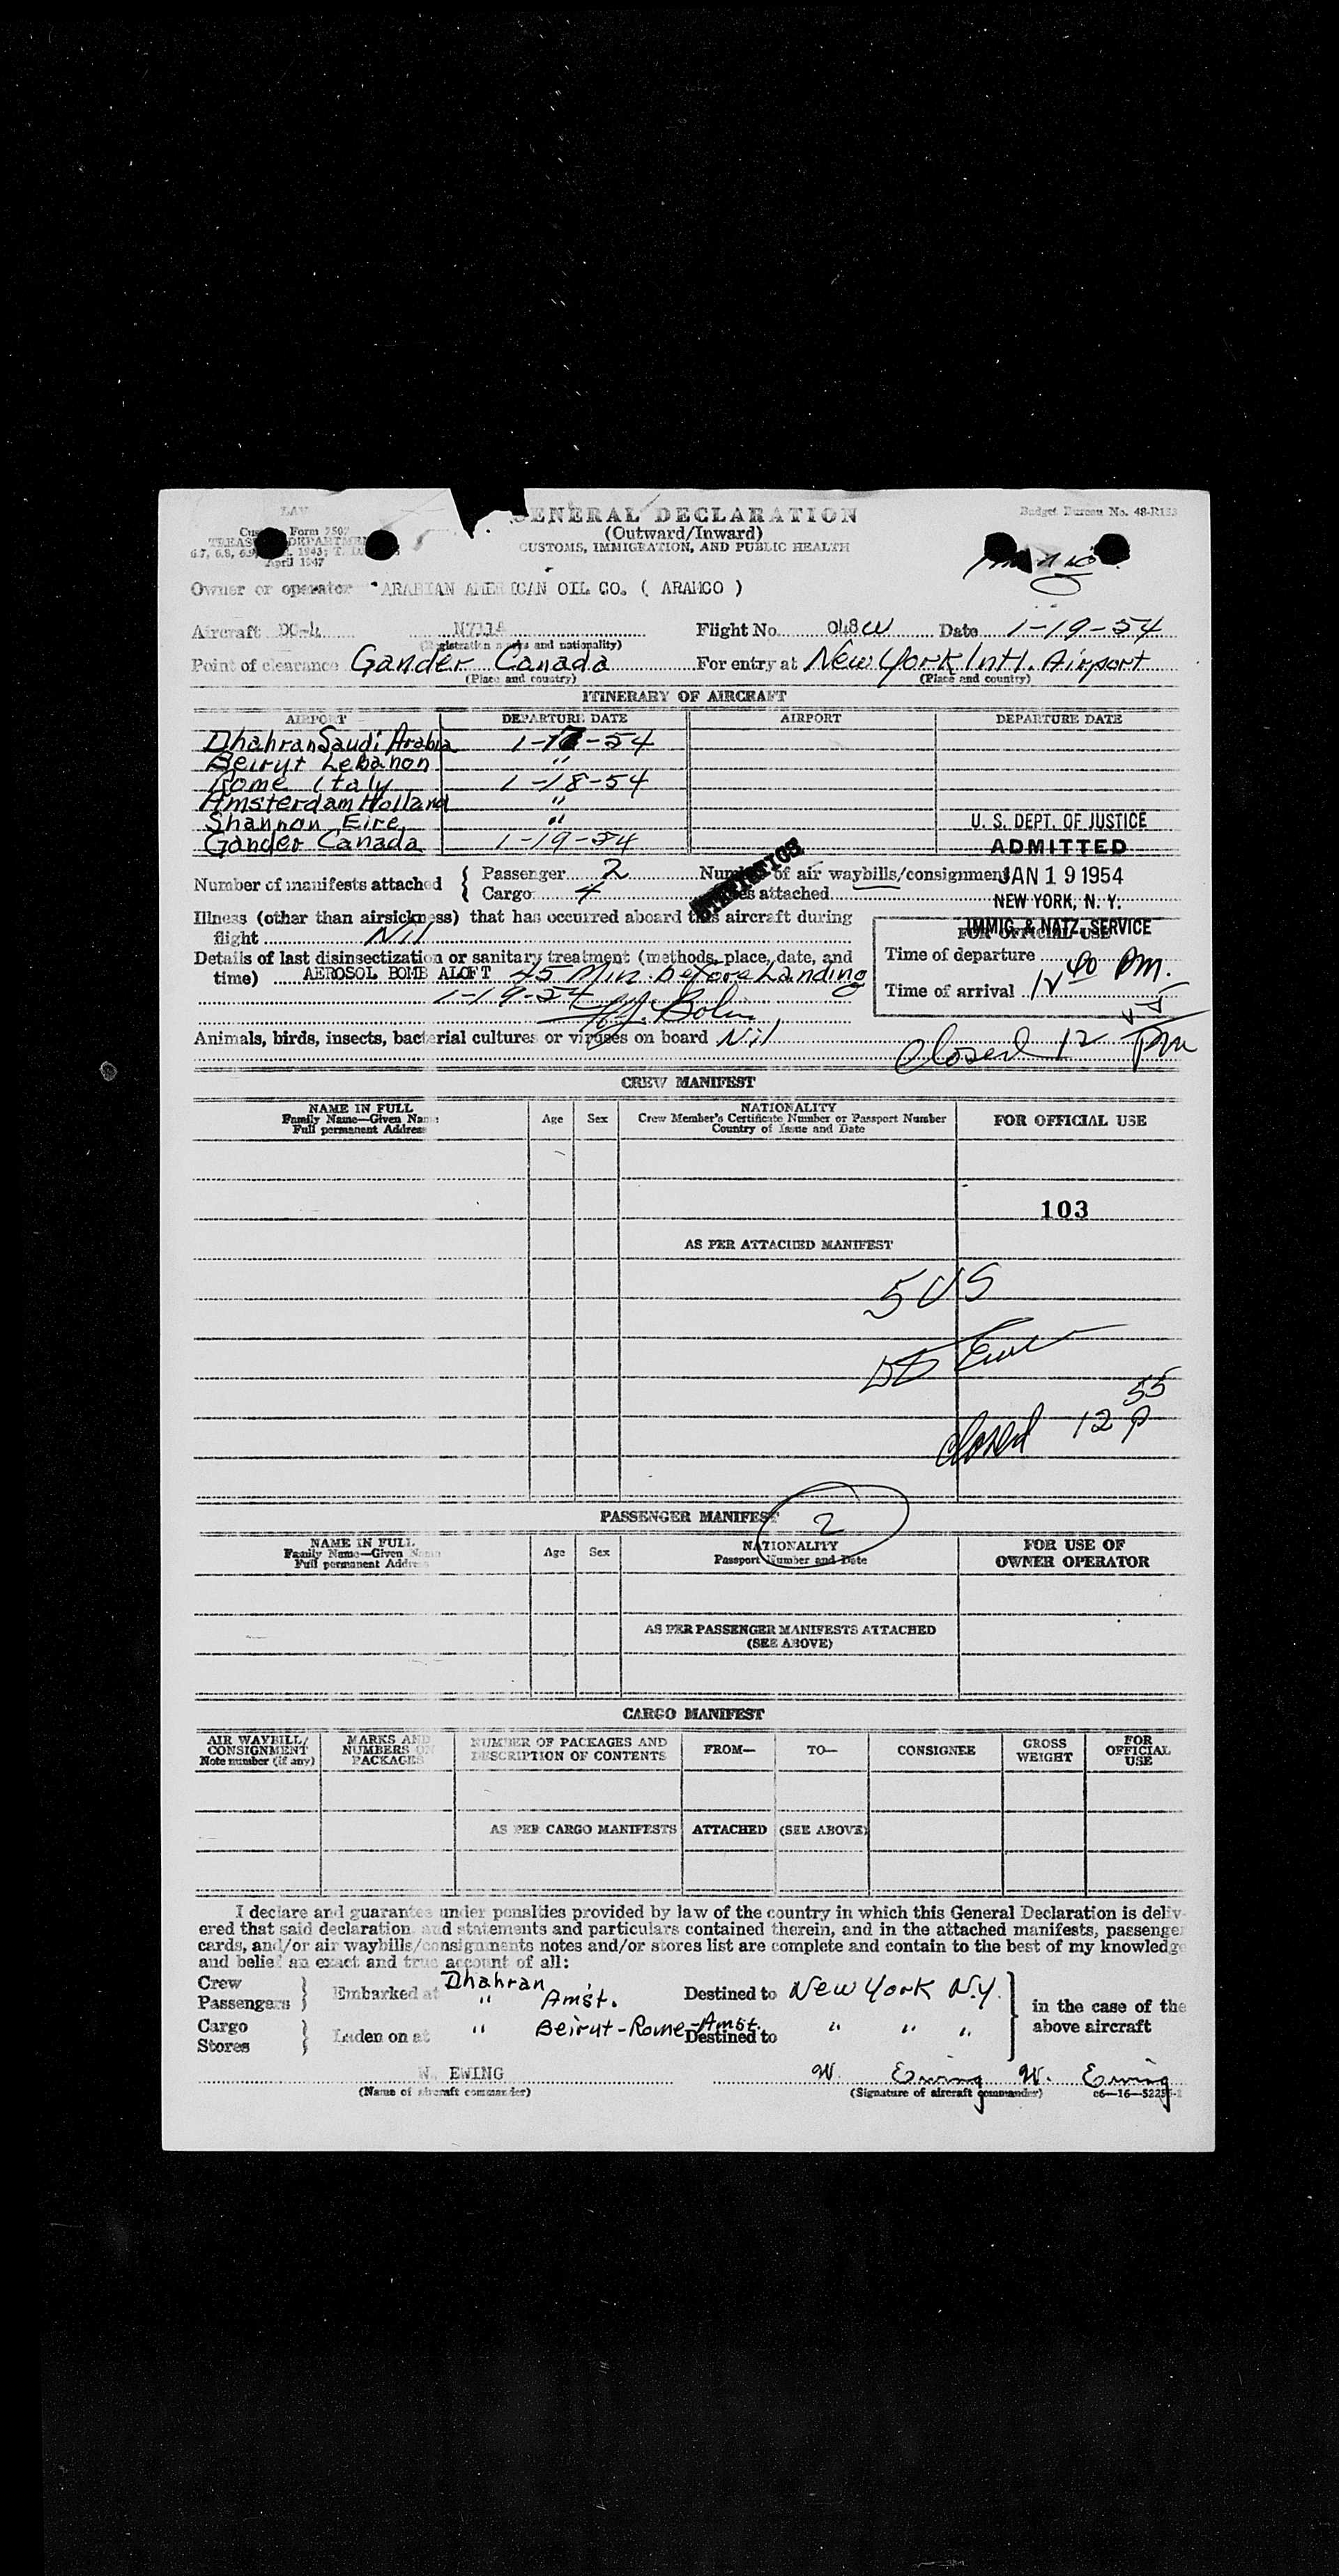 GENERAL DECLARATION
Budget Bureau No. 48-R153
(Outward/Inward)
Form 7507
TREASURY DEPARTMENT
CUSTOMS, IMMIGRATION, AND PUBLIC HEALTH
April 1947
Owner or operator ARABIAN AMERICAN OIL CO. ( ARAMCO )
Aircraft DC-4 Flight No. 048W Date 1-19-54
(Registration marks and nationality)
Point of clearance Gander Canada For entry at New York Intl. Airport
(Place and country) (Place and country)
ITINERARY OF AIRCRAFT
AIRPORT DEPARTURE DATE AIRPORT DEPARTURE DATE
Dhahran Saudi Arabia 1-17-54
Beirut Lebanon "
Rome Italy 1-18-54
Amsterdam Holland "
Shannon Eire "
Gander Canada 1-19-54
U. S. DEPT. OF JUSTICE
ADMITTED
JAN 19 1954
NEW YORK, N. Y.
IMMIG. & NATZ. SERVICE
STATISTICS
Number of manifests attached { Passenger 2 Number of air waybills/consignment
Cargo 4 attached
Illness (other than airsickness) that has occurred aboard this aircraft during
flight Nil
FOR OFFICIAL USE
Details of last disinsectization or sanitary treatment (methods, place, date, and
time) AEROSOL BOMB ALOFT 45 Min. before Landing
1-19-54
Time of departure
Time of arrival 12 40 Pm.
Animals, birds, insects, bacterial cultures or viruses on board Nil
Closed 12 Pm
CREW MANIFEST
NAME IN FULL
Family Name—Given Name
Full permanent Address
Age Sex
NATIONALITY
Crew Member's Certificate Number or Passport Number
Country of Issue and Date
FOR OFFICIAL USE
103
AS PER ATTACHED MANIFEST
5 US
closed 12 55 P
PASSENGER MANIFEST 2
NAME IN FULL
Family Name—Given Name
Full permanent Address
Age Sex
NATIONALITY
Passport Number and Date
FOR USE OF
OWNER OPERATOR
AS PER PASSENGER MANIFESTS ATTACHED
(SEE ABOVE)
CARGO MANIFEST
AIR WAYBILL/
CONSIGNMENT
Note number (if any)
MARKS AND
NUMBERS ON
PACKAGES
NUMBER OF PACKAGES AND
DESCRIPTION OF CONTENTS
FROM— TO— CONSIGNEE
GROSS
WEIGHT
FOR
OFFICIAL
USE
AS PER CARGO MANIFESTS ATTACHED (SEE ABOVE)
I declare and guarantee under penalties provided by law of the country in which this General Declaration is deliv-
ered that said declaration and statements and particulars contained therein, and in the attached manifests, passenger
cards, and/or air waybills/consignments notes and/or stores list are complete and contain to the best of my knowledge
and belief an exact and true account of all:
Crew
Passengers } Embarked at Dhahran " Amst. Destined to New York N.Y.
in the case of the
above aircraft
Cargo
Stores } Laden on at " Beirut-Rome-Amst. Destined to " " "
W. EWING W. Ewing W. Ewing
(Name of aircraft commander) (Signature of aircraft commander)